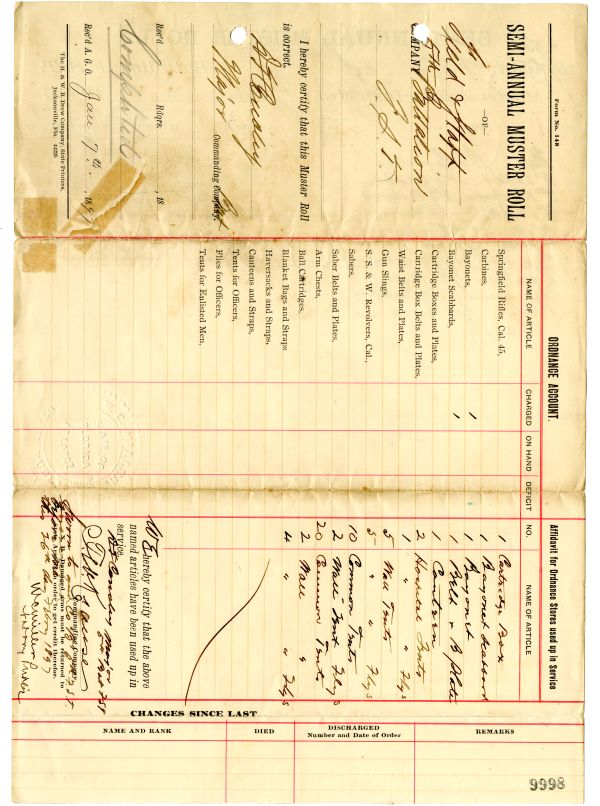 Form No. 148
SEMI-ANNUAL MUSTER ROLL
—OF—
Field & Staff
5th Battalion
COMPANY
F. S. T.
I hereby certify that this Muster Roll
is correct.
Major
Commanding Company.
Rec'd Hdqrs. 18
Rec'd A. G. O. Jan 7th, 1897
The H. & W. B. Drew Company, State Printers,
Jacksonville, Fla.
ORDNANCE ACCOUNT.
NAME OF ARTICLE CHARGED ON HAND DEFICIT
Springfield Rifles, Cal. 45,
Carbines,
Bayonets, 1
Bayonet Scabbards, 1
Cartridge Boxes and Plates,
Cartridge Box Belts and Plates,
Waist Belts and Plates,
Gun Slings,
S. S. & W. Revolvers, Cal.,
Sabers,
Saber Belts and Plates,
Arm Chests,
Ball Cartridges,
Blanket Bags and Straps
Haversacks and Straps,
Canteens and Straps,
Tents for Officers,
Flies for Officers,
Tents for Enlisted Men,
Affidavit for Ordnance Stores used up in Service
NO. NAME OF ARTICLE
1 Cartridge Box
1 Bayonet Scabbard
1 Bayonet
1 Belt & B Plate
1 Canteen
2 Hospital Tents
1 " " Flys
5 Wall Tents
5 " " Flys
10 Common Tents
2 Wall Tent Flys
20 Common Tents
2 Wall "
4 " " Flys
We hereby certify that the above
named articles have been used up in
service.
Commanding Company.
N. B.—Damaged arms must be returned to
order to get credit therefor.
Sworn to
this 26th day 1897
Notary Public
CHANGES SINCE LAST
NAME AND RANK DIED DISCHARGED REMARKS
Number and Date of Order
9998